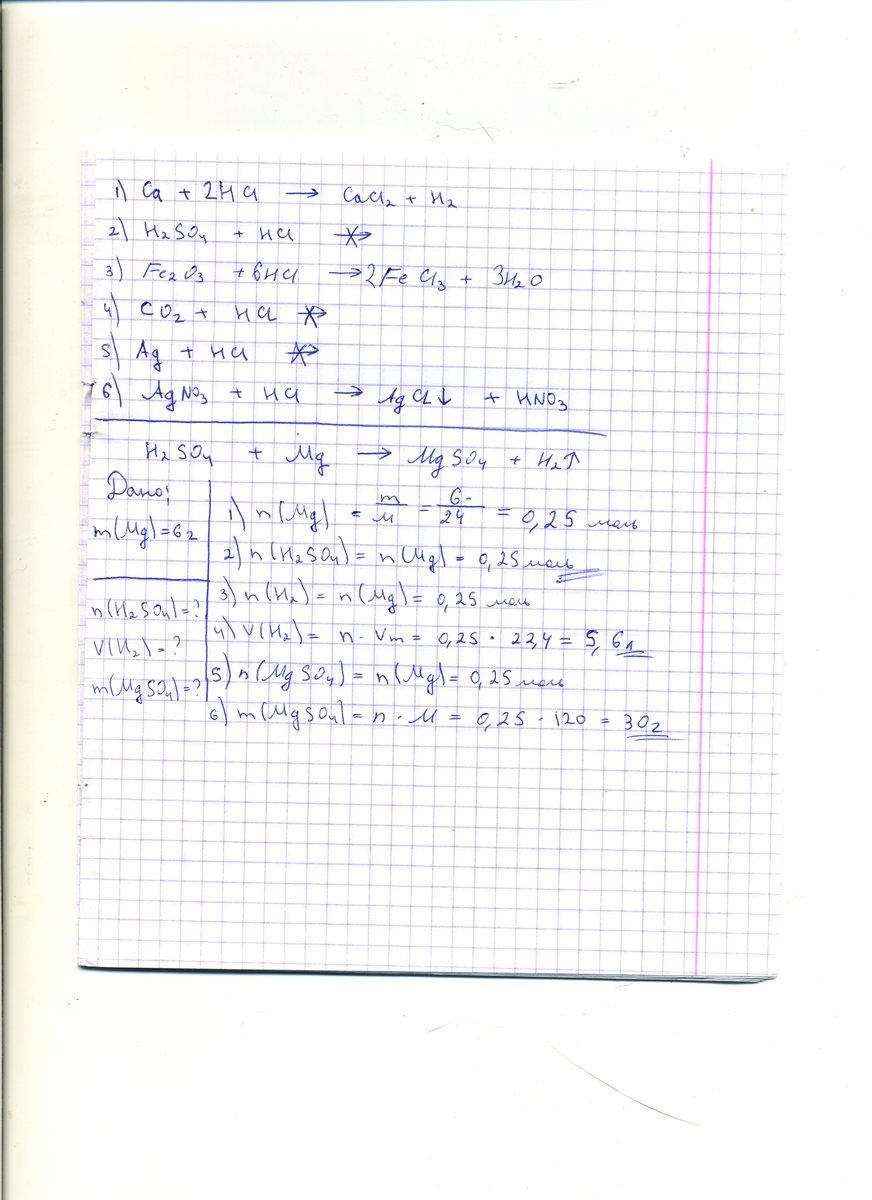 1) Ca + 2HCl → CaCl₂ + H₂
2) H₂SO₄ + HCl ↛
3) Fe₂O₃ + 6HCl → 2FeCl₃ + 3H₂O
4) CO₂ + HCl ↛
5) Ag + HCl ↛
6) AgNO₃ + HCl → AgCl↓ + HNO₃
H₂SO₄ + Mg → MgSO₄ + H₂↑
Дано:
m(Mg)=6г
n(H₂SO₄)=?
V(H₂)=?
m(MgSO₄)=?
1) n(Mg) = m/M = 6/24 = 0,25 моль
2) n(H₂SO₄) = n(Mg) = 0,25 моль
3) n(H₂) = n(Mg) = 0,25 моль
4) V(H₂) = n · Vm = 0,25 · 22,4 = 5,6л
5) n(MgSO₄) = n(Mg) = 0,25 моль
6) m(MgSO₄) = n · M = 0,25 · 120 = 30г